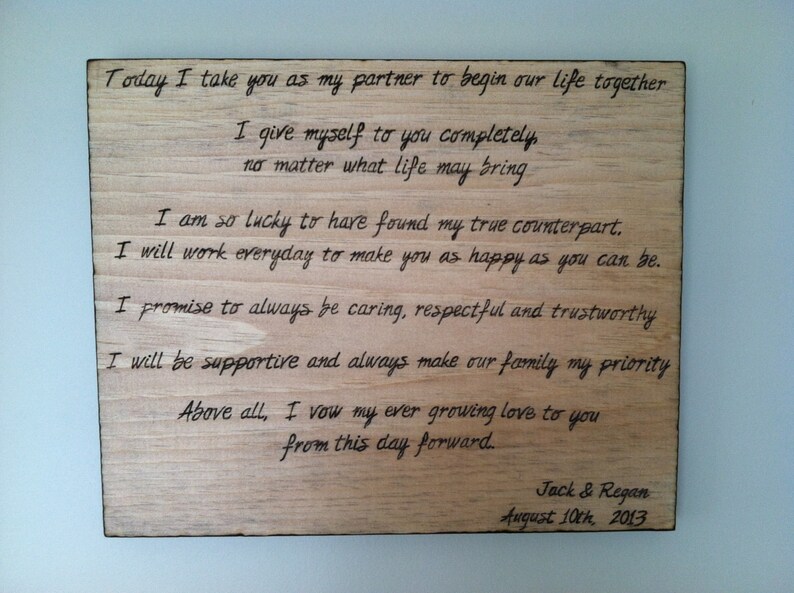 Today I take you as my partner to begin our life together
I give myself to you completely,
no matter what life may bring
I am so lucky to have found my true counterpart.
I will work everyday to make you as happy as you can be.
I promise to always be caring, respectful and trustworthy
I will be supportive and always make our family my priority
Above all, I vow my ever growing love to you
from this day forward.
Jack & Regan
August 10th, 2013